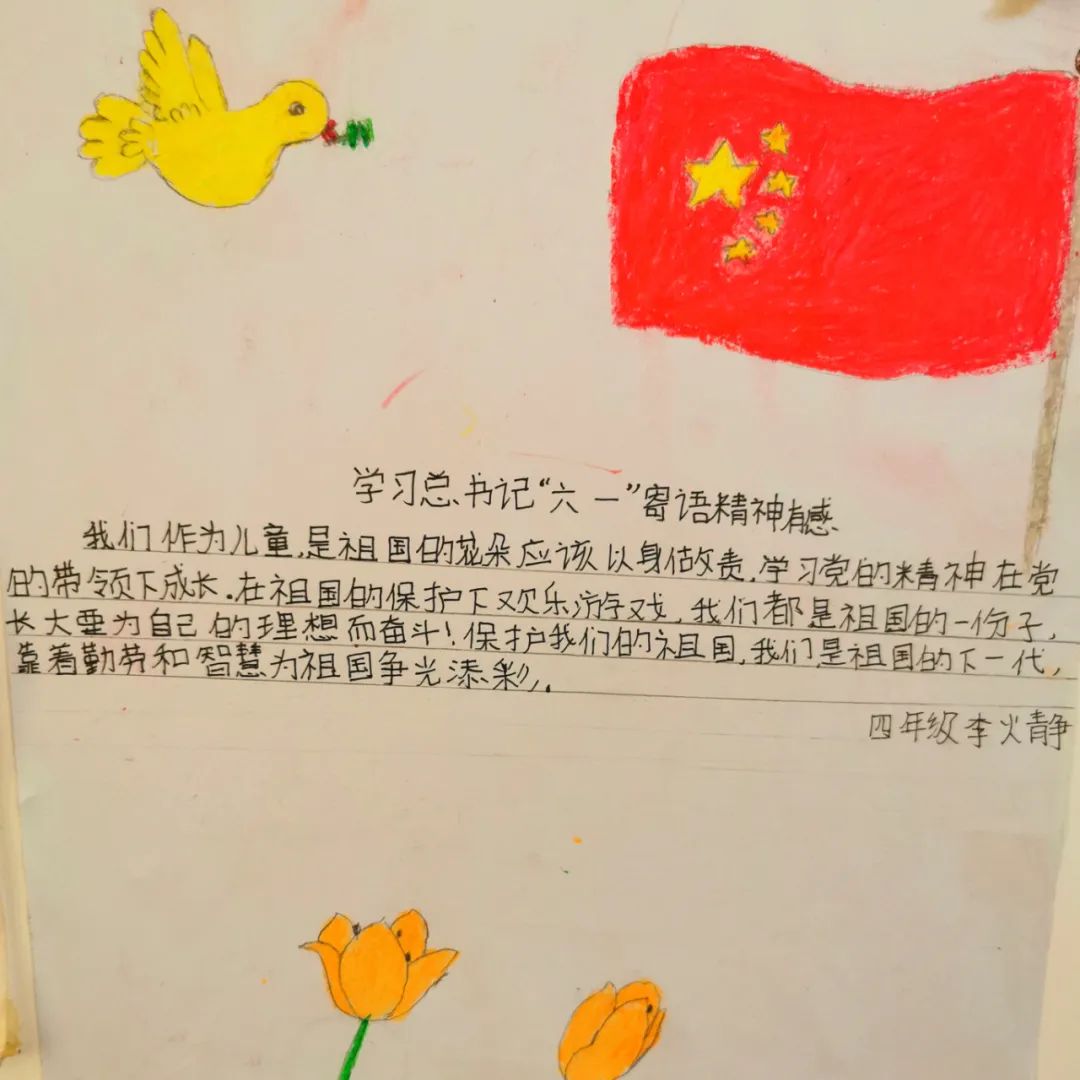 学习总书记“六一”寄语精神有感
我们作为儿童,是祖国的花朵应该以身做责,学习党的精神在党
的带领下成长.在祖国的保护下欢乐游戏,我们都是祖国的一份子,
长大要为自己的理想而奋斗!保护我们的祖国,我们是祖国的下一代,
靠着勤劳和智慧为祖国争光添彩.
四年级李火静